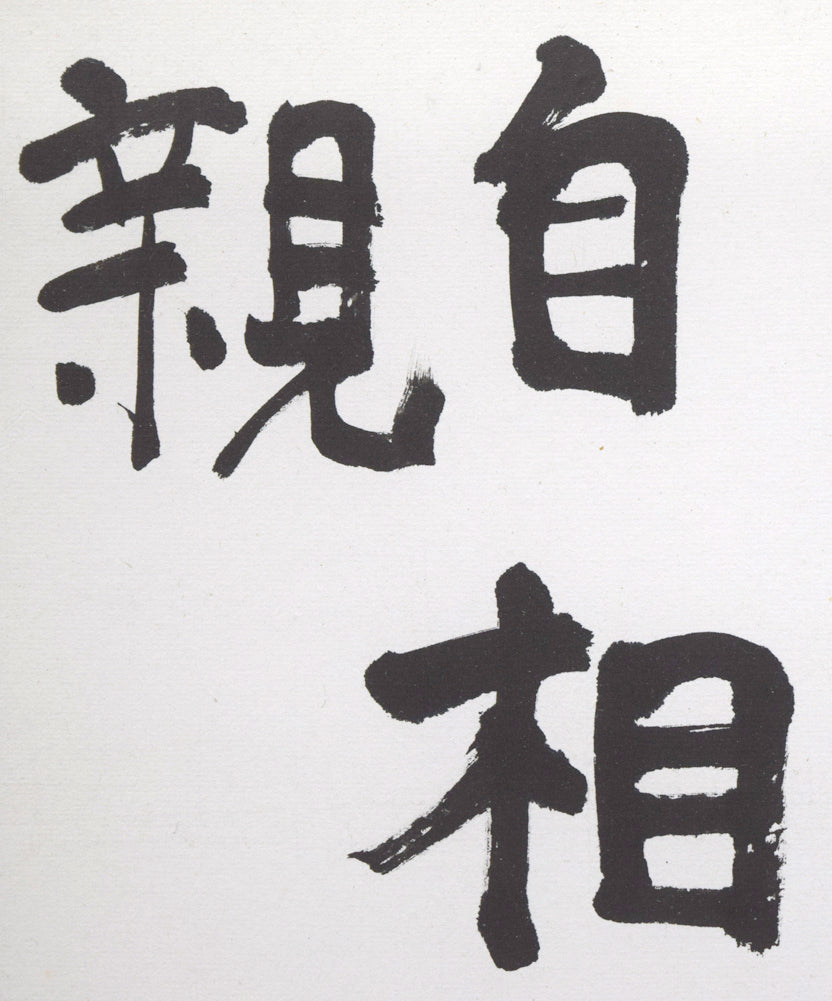 自相
親